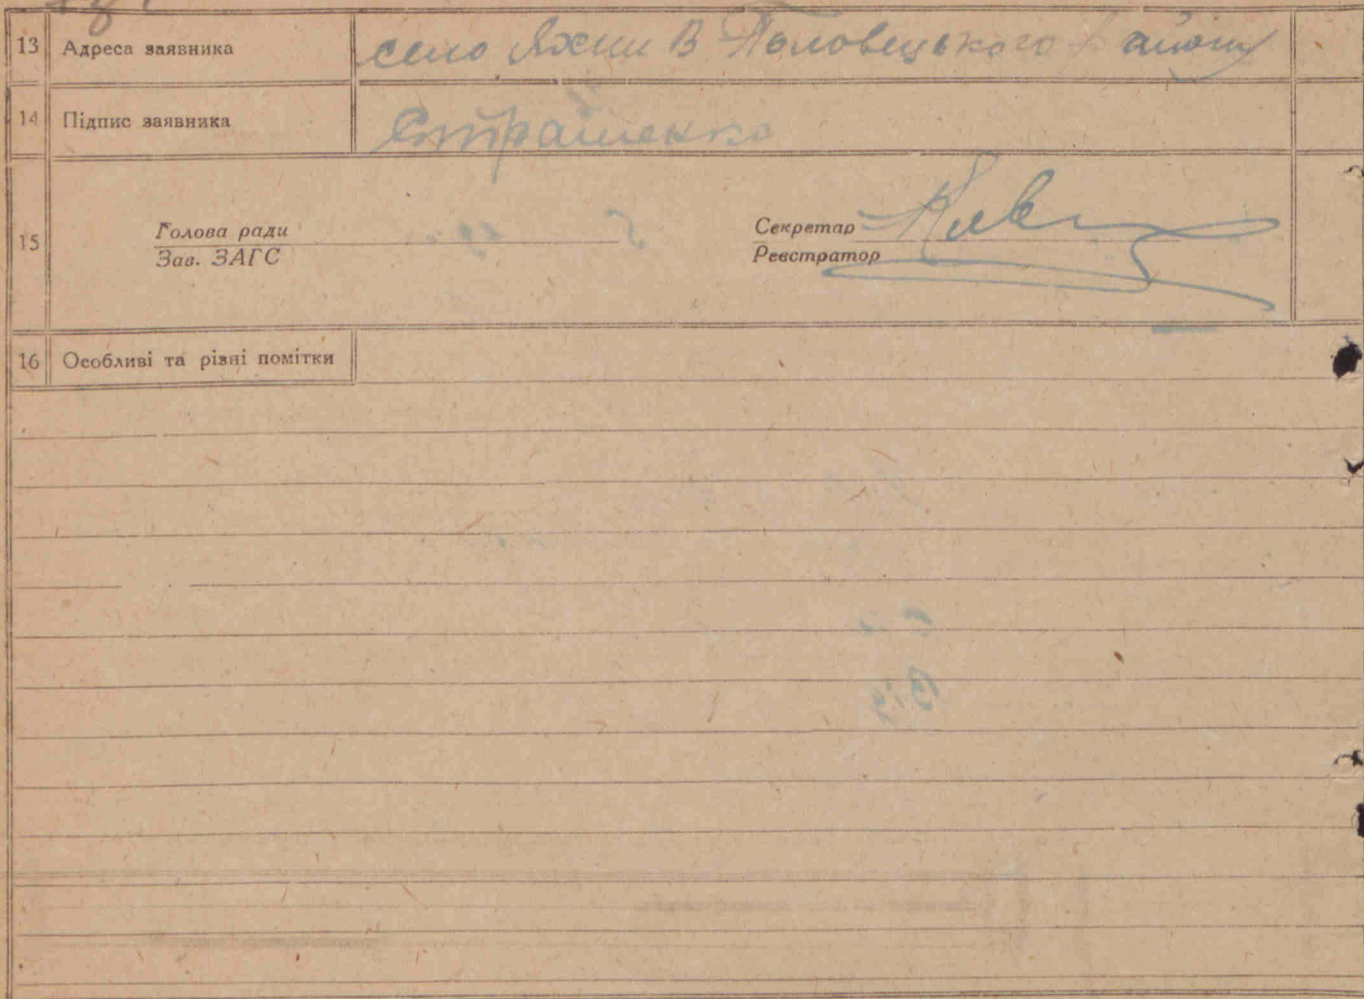 13 Адреса заявника село Яхни В Половецького Району
14 Підпис заявника Страшенко
15 Голова ради Секретар
Зав. ЗАГС Реєстратор
16 Особливі та різні помітки